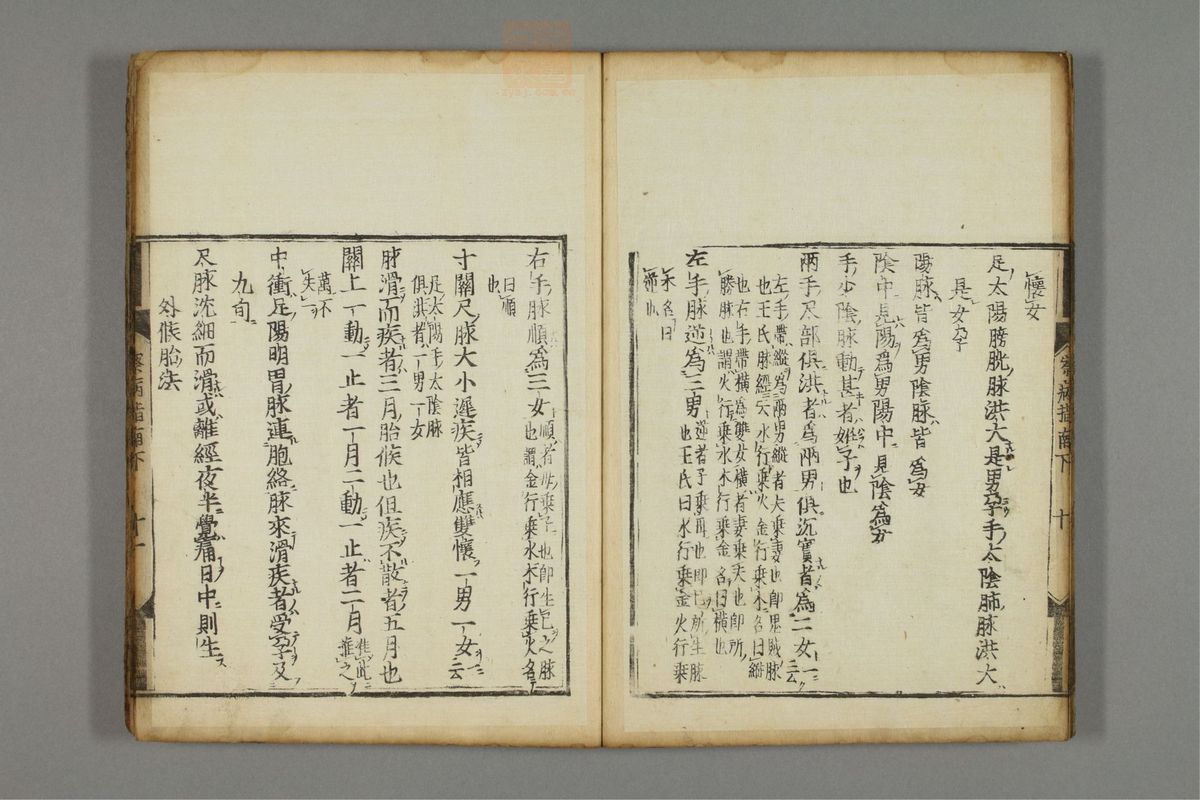 懷女
足太陽膀胱脉洪大是男孕手太陰肺脉洪大
是女孕
陽脉皆爲男陰脉皆爲女
陰中見陽爲男陽中見陰爲女
手少陰脉動甚者姙子也
兩手尺部俱洪者爲兩男俱沉實者爲二女一云
左手帶縱爲兩男縱者夫乘妻也卽鬼賊脉
也王氏脉經云水行乘火金行乘木名曰縱
也右手帶橫爲雙女橫者妻乘夫也卽所
勝脉也謂火行乘水木行乘金名曰橫也
左手脉逆爲三男逆者子乘母也卽己所生脉
也王氏曰水行乘金火行乘
木名曰
逆也
右手脉順爲三女順者母乘子也卽生己之脉
也謂金行乘水木行乘火名
曰順
也
寸關尺脉大小遲疾皆相應雙懷一男一女云
足太陽手太陰脉
俱洪者一男一女
脉滑而疾者三月胎候也但疾不散者五月也
關上一動一止者一月二動一止者二月准此
推之
萬不
失一
中衝足陽明胃脉連胞絡脉來滑疾者受孕及
九旬
尺脉沈細而滑或離經夜半覺痛日中則生
外候胎法
察病指南下 十
察病指南下 十一